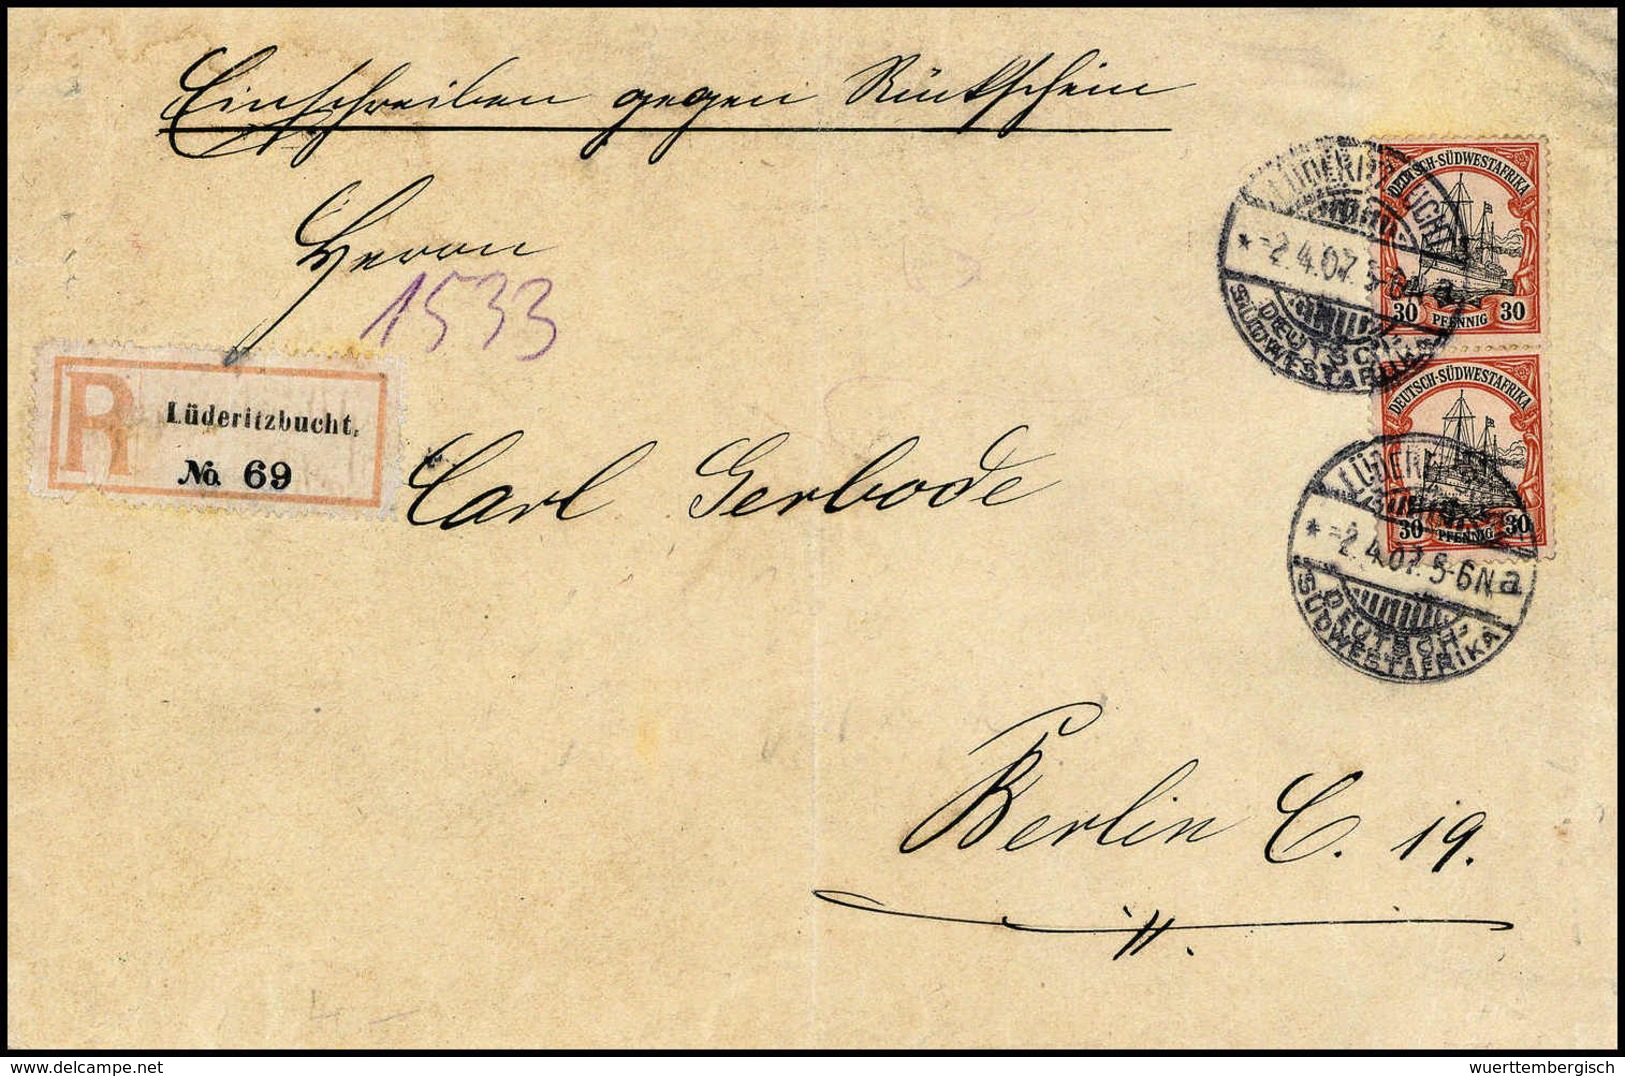 Einschreiben gegen Rückschein
Herrn
1533
R
Lüderitzbucht.
No. 69
Carl Gerbode
Berlin C. 19.
DEUTSCH-SÜDWESTAFRIKA
30 PFENNIG 30
DEUTSCH-SÜDWESTAFRIKA
30 PFENNIG 30
LÜDERITZBUCHT
* -2.4.07. 5-6N a
DEUTSCH-
SÜDWESTAFRIKA
* -2.4.07. 5-6N a
DEUTSCH-
SÜDWESTAFRIKA
delcampe.net
wuerttembergisch